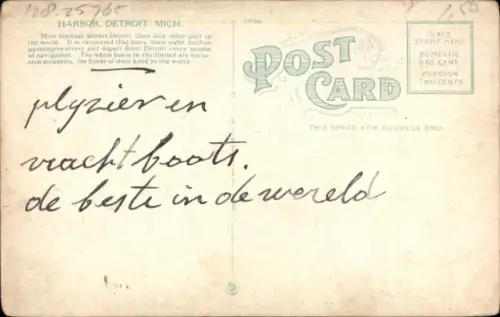 128-25765
1,50
HARBOR, DETROIT, MICH.
More tonnage passes Detroit than any other port in
the world. It is estimated that more than eight million
passengers arrive and depart from Detroit every season
of navigation. The white boats in the Harbor are excur-
sion steamers, the finest of their kind in the world.
POST
CARD
PLACE
STAMP HERE
DOMESTIC
ONE CENT
FOREIGN
TWO CENTS
THIS SPACE FOR ADDRESS ONLY
plyzier en
vracht boots.
de beste in de wereld